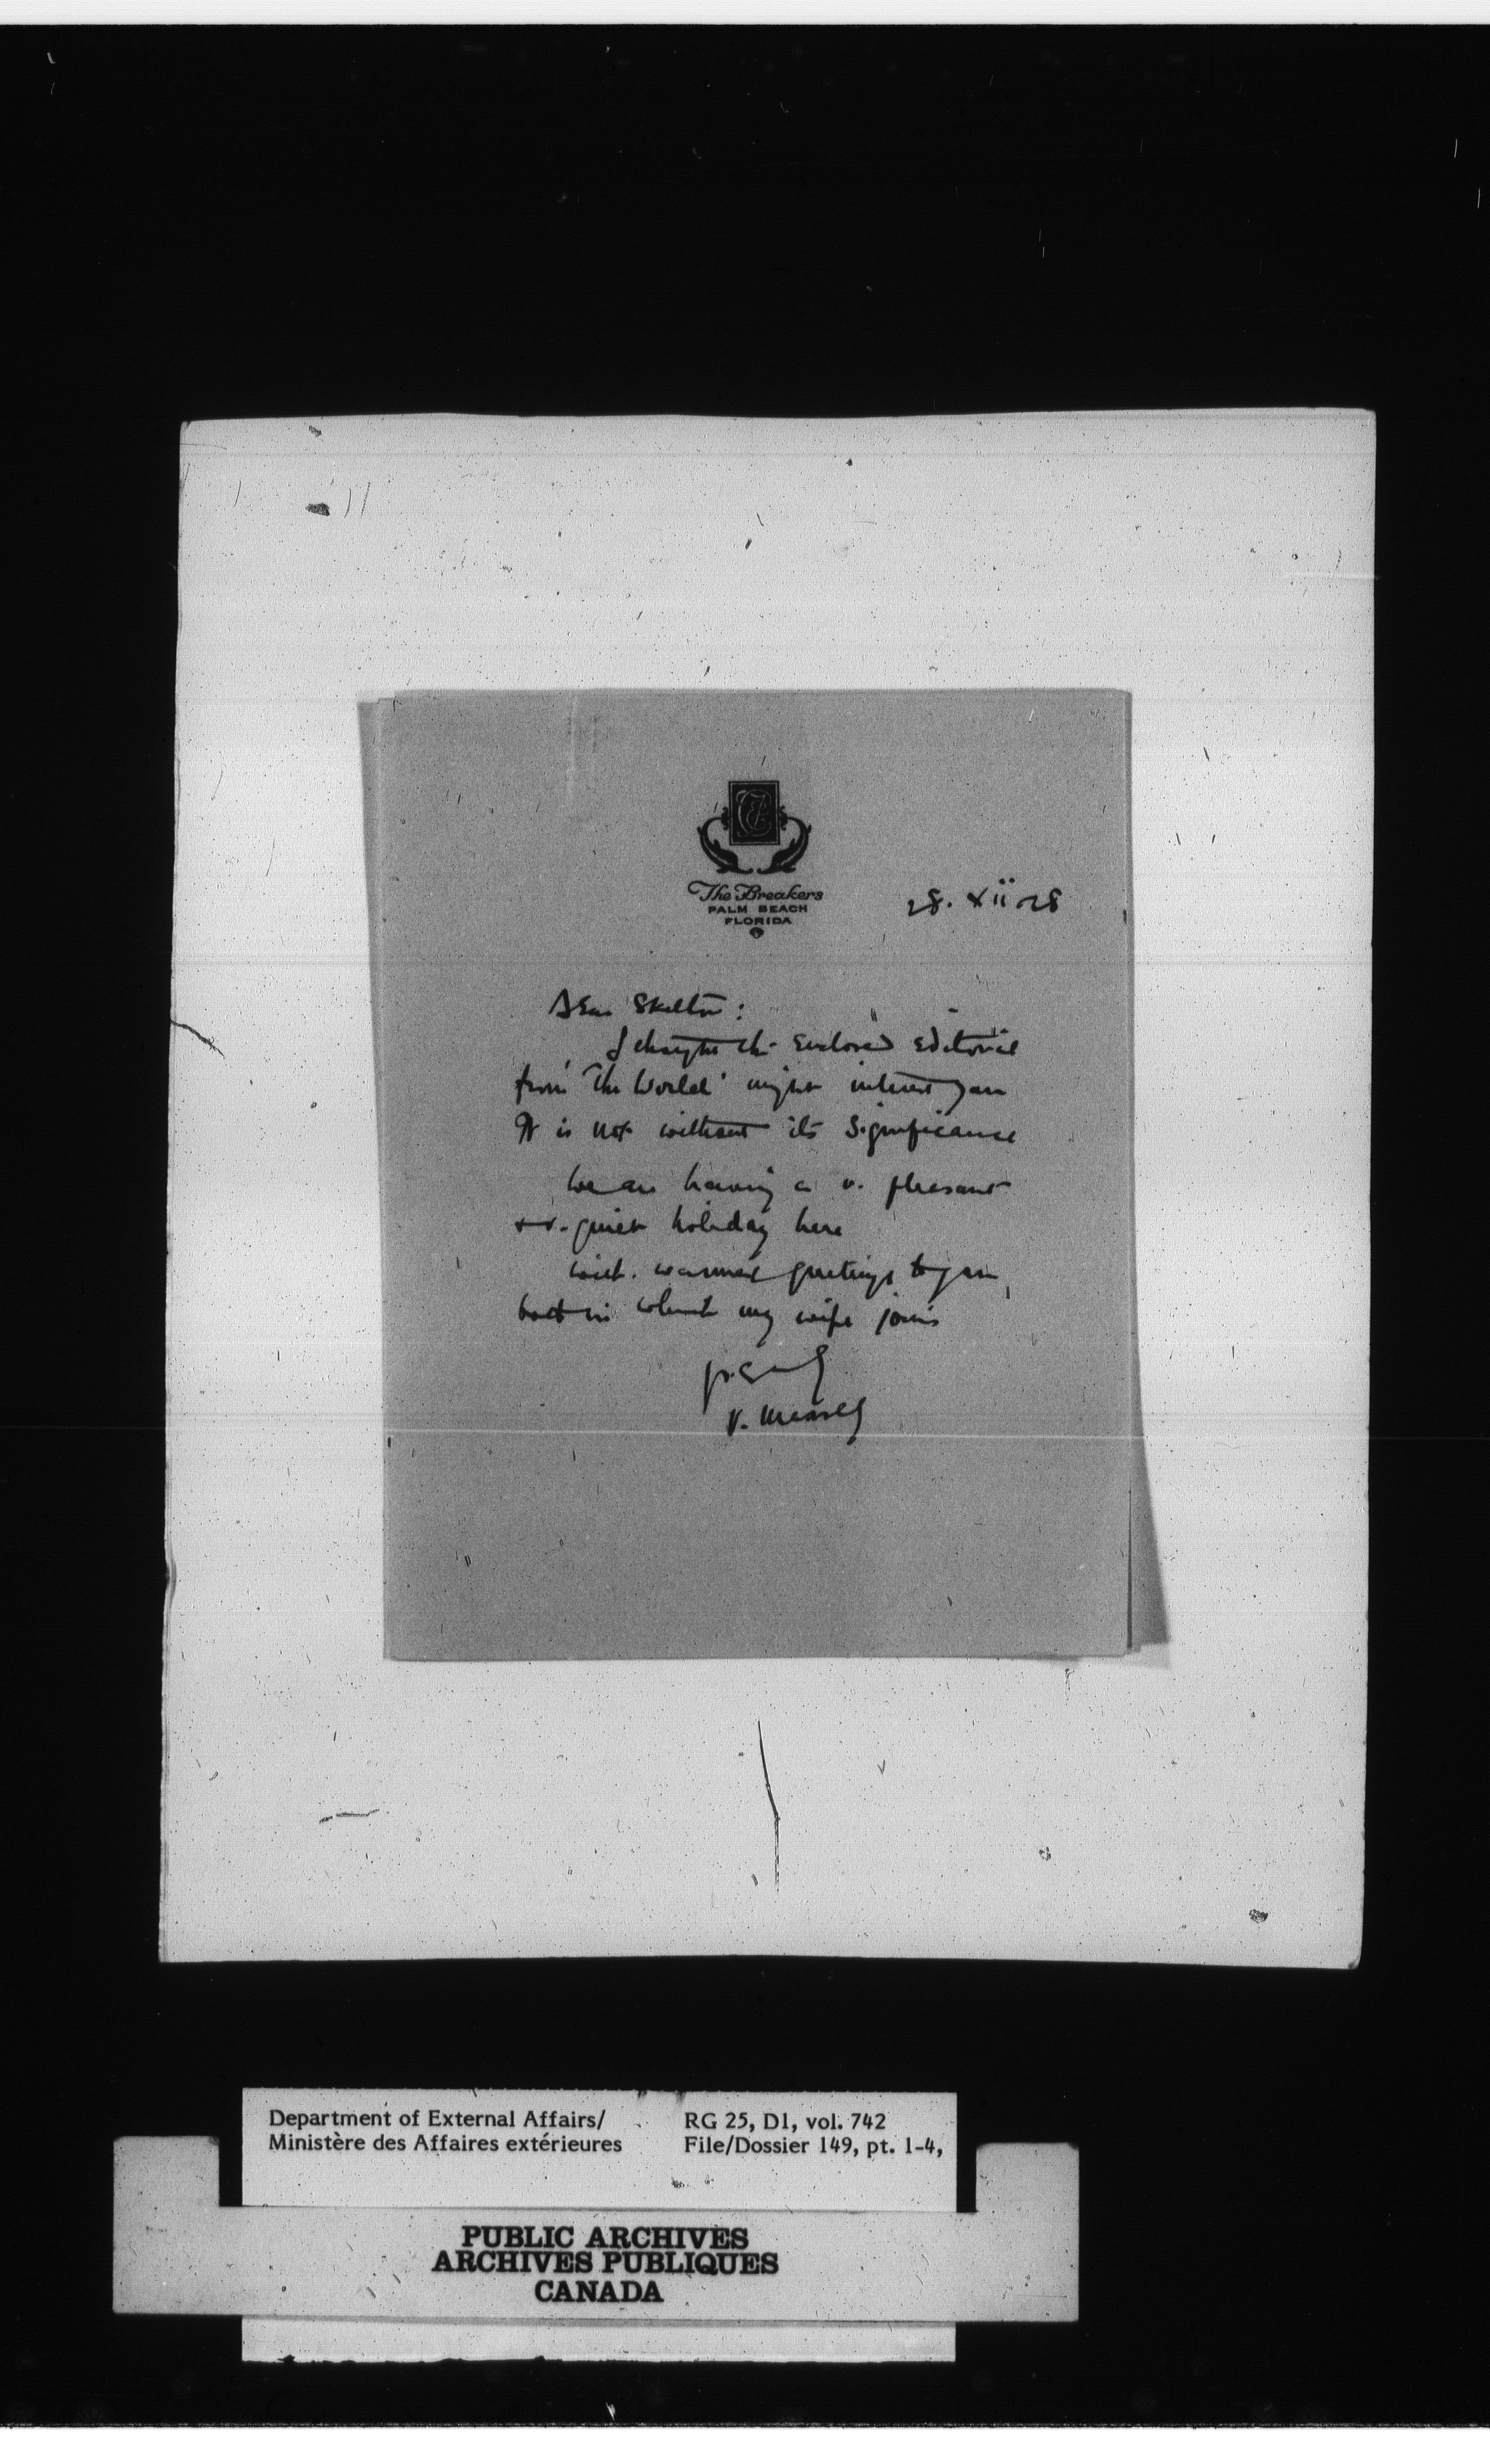 The Breakers
PALM BEACH
FLORIDA
28. xii. 28
Dear Skelton:
I thought the enclosed editorial
from 'The World' might interest you
It is not without its significance
We are having a v. pleasant
+ v. quiet holiday here
With warmest greetings to you
both in which my wife joins
V. Massey
Department of External Affairs/
Ministère des Affaires extérieures
RG 25, D1, vol. 742
File/Dossier 149, pt. 1-4,
PUBLIC ARCHIVES
ARCHIVES PUBLIQUES
CANADA